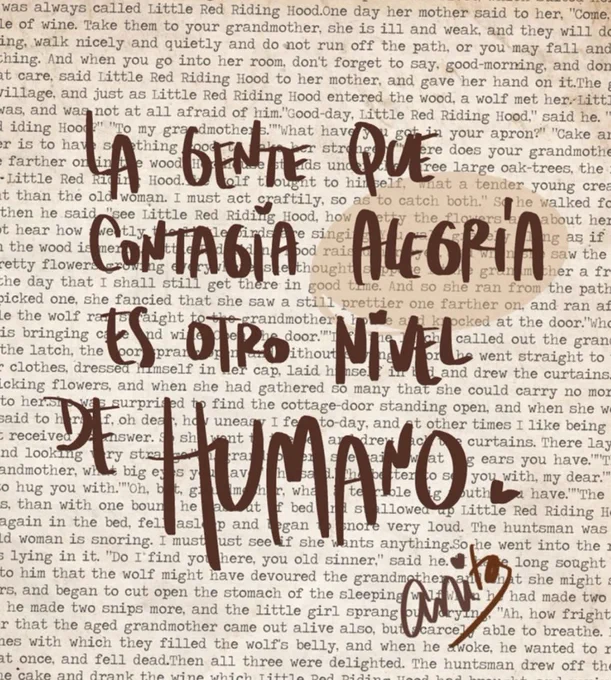 LA GENTE QUE
CONTAGIA ALEGRÍA
ES OTRO NIVEL
DE HUMANO.
anita
was always called Little Red Riding Hood.One day her mother said to her, "Come
le of wine. Take them to your grandmother, she is ill and weak, and they will do
ing, walk nicely and quietly and do not run off the path, or you may fall and
thing. And when you go into her room, don't forget to say, good-morning, and don
at care, said Little Red Riding Hood to her mother, and gave her hand on it.The g
village, and just as Little Red Riding Hood entered the wood, a wolf met her. Litt
was, and was not at all afraid of him."Good-day, Little Red Riding Hood," said he.
iding Hood" "To my grandmother." "What have you got in your apron?" "Cake an
er is to have something good does your grandmothe
farther on in the wood three large oak-trees, the
Little Red Riding Hood. wolf thought to himself, what a tender young crea
t than the old woman. I must act craftily, so as to catch both." So he walked fo
then he said, "see Little Red Riding Hood, how pretty the flowers about her
ot hear how sweetly the little birds are singing as if
n the wood is merry saw the
retty flowers growing thought her a fr
the day that I shall still get there in good time. And so she ran from the path
picked one, she fancied that she saw a still prettier one farther on, and ran af
le the wolf ran straight to the grandmother and knocked at the door."Who
is bringing and wine called out the grand
the latch, the door sprang open without went straight to
r clothes, dressed himself in her cap, laid himself in bed and drew the curtains.
icking flowers, and when she had gathered so many that she could carry no mor
to her. surprised to find the cottage-door standing open, and when she w
said to herself, oh dear, how uneasy I feel to-day, and at other times I like being
received answer. So she went and drew curtains. There lay
nd looking very strange ears you have.""T
andmother, what big eyes you have, he said. The better to see you with, my dear."
to hug you with.""Oh, but, grandmother, what terrible big mouth have.""The
s, than with one bound he was out of bed and swallowed up Little Red Riding H
again in the bed, fell asleep and began to snore very loud. The huntsman was
ld woman is snoring. I must just see if she wants anything.So he went into the
s lying in it. "Do I find you here, you old sinner," said he. long sought
to him that the wolf might have devoured the grandmother, and that she might s
rs, and began to cut open the stomach of the sleeping wolf. had made two
he made two snips more, and the little girl sprang out, crying, "Ah, how fright
r that the aged grandmother came out alive also, but scarcely able to breathe.
nes with which they filled the wolf's belly, and when he awoke, he wanted to r
at once, and fell dead.Then all three were delighted. The huntsman drew off th
he cake and drank the wine which Little Red Riding Hood had brought